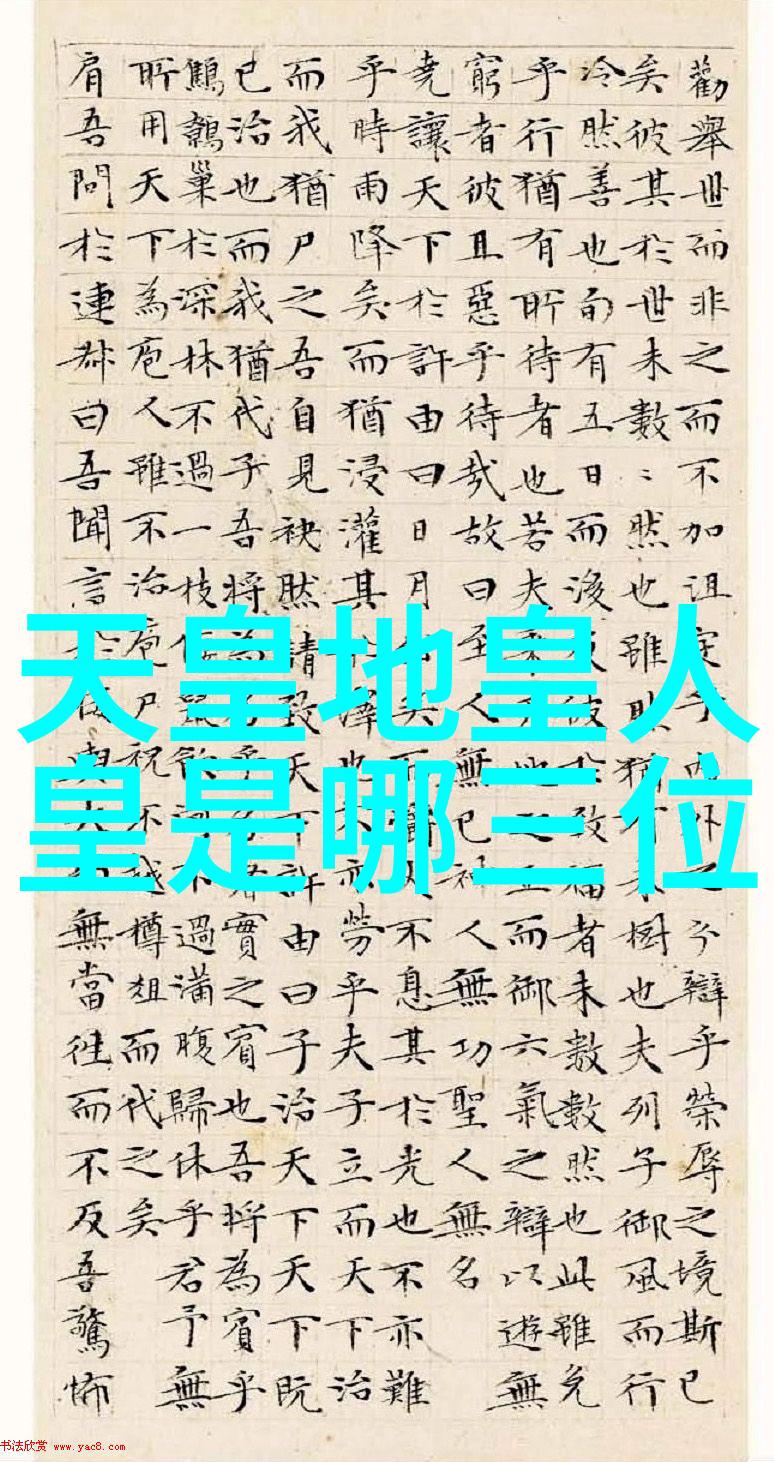 天皇地皇人
皇是哪三位
勸舉世而非之而不加沮定乎內外之分辯乎榮辱之境斯已
矣彼其於世未數〻然也雖然猶有未樹也夫列子御風而行
泠然善也旬有五日而後反彼於致福者未數數然也此雖免
乎行猶有所待者也若夫乘地之正而御六氣之辯以遊無
窮者彼且惡乎待哉故曰至人無已神人無功聖人無名
堯讓天下於許由曰日月矣而爝火不息其於光也不亦難
乎時雨降矣而猶浸灌其於澤也不亦勞乎夫子立而天下治
而我猶尸之吾自見缺然請致天下許由曰子治天下天下既
已治也而我猶代子吾將為乎者實之賓也吾將為賓乎
鷦鷯巢於深林不過一枝偃鼠飲河不過滿腹歸休乎君予無
所用天下為庖人雖不治庖尸祝不越樽俎而代之矣
肩吾問於連叔曰吾聞言於輿大無當往而不反吾驚怖
书法欣赏 www.yac8.com